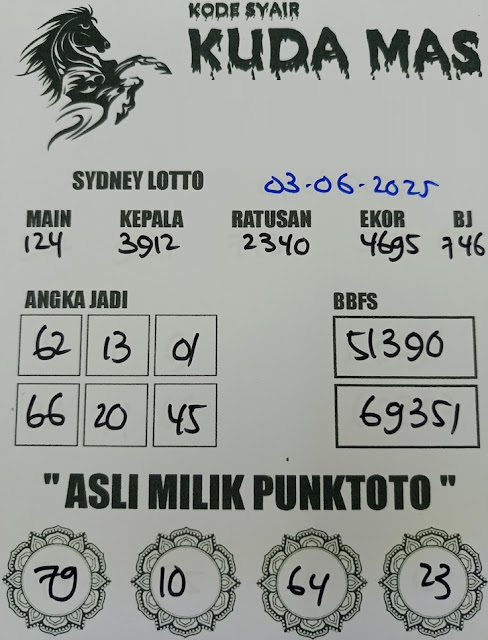 KODE SYAIR
KUDA MAS
SYDNEY LOTTO 03-06-2025
MAIN KEPALA RATUSAN EKOR BJ
124 3912 2340 4695 746
ANGKA JADI BBFS
62 13 01 51390
66 20 45 69351
" ASLI MILIK PUNKTOTO "
79 10 64 23